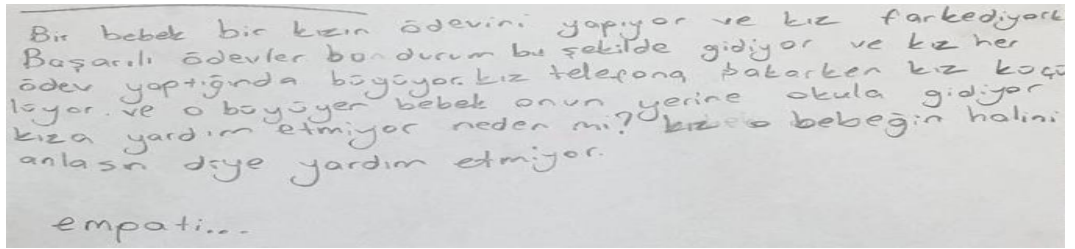 Bir bebek bir kızın ödevini yapıyor ve kız farkediyork
Başarılı ödevler bondurum bu şekilde gidiyor ve kız her
ödev yaptığında büyüyor. kız telefona bakarken kız küçü
lüyor. ve o büyüyen bebek onun yerine okula gidiyor
kıza yardım etmiyor neden mi? kız o bebeğin halini
anlasın diye yardım etmiyor.
empati...